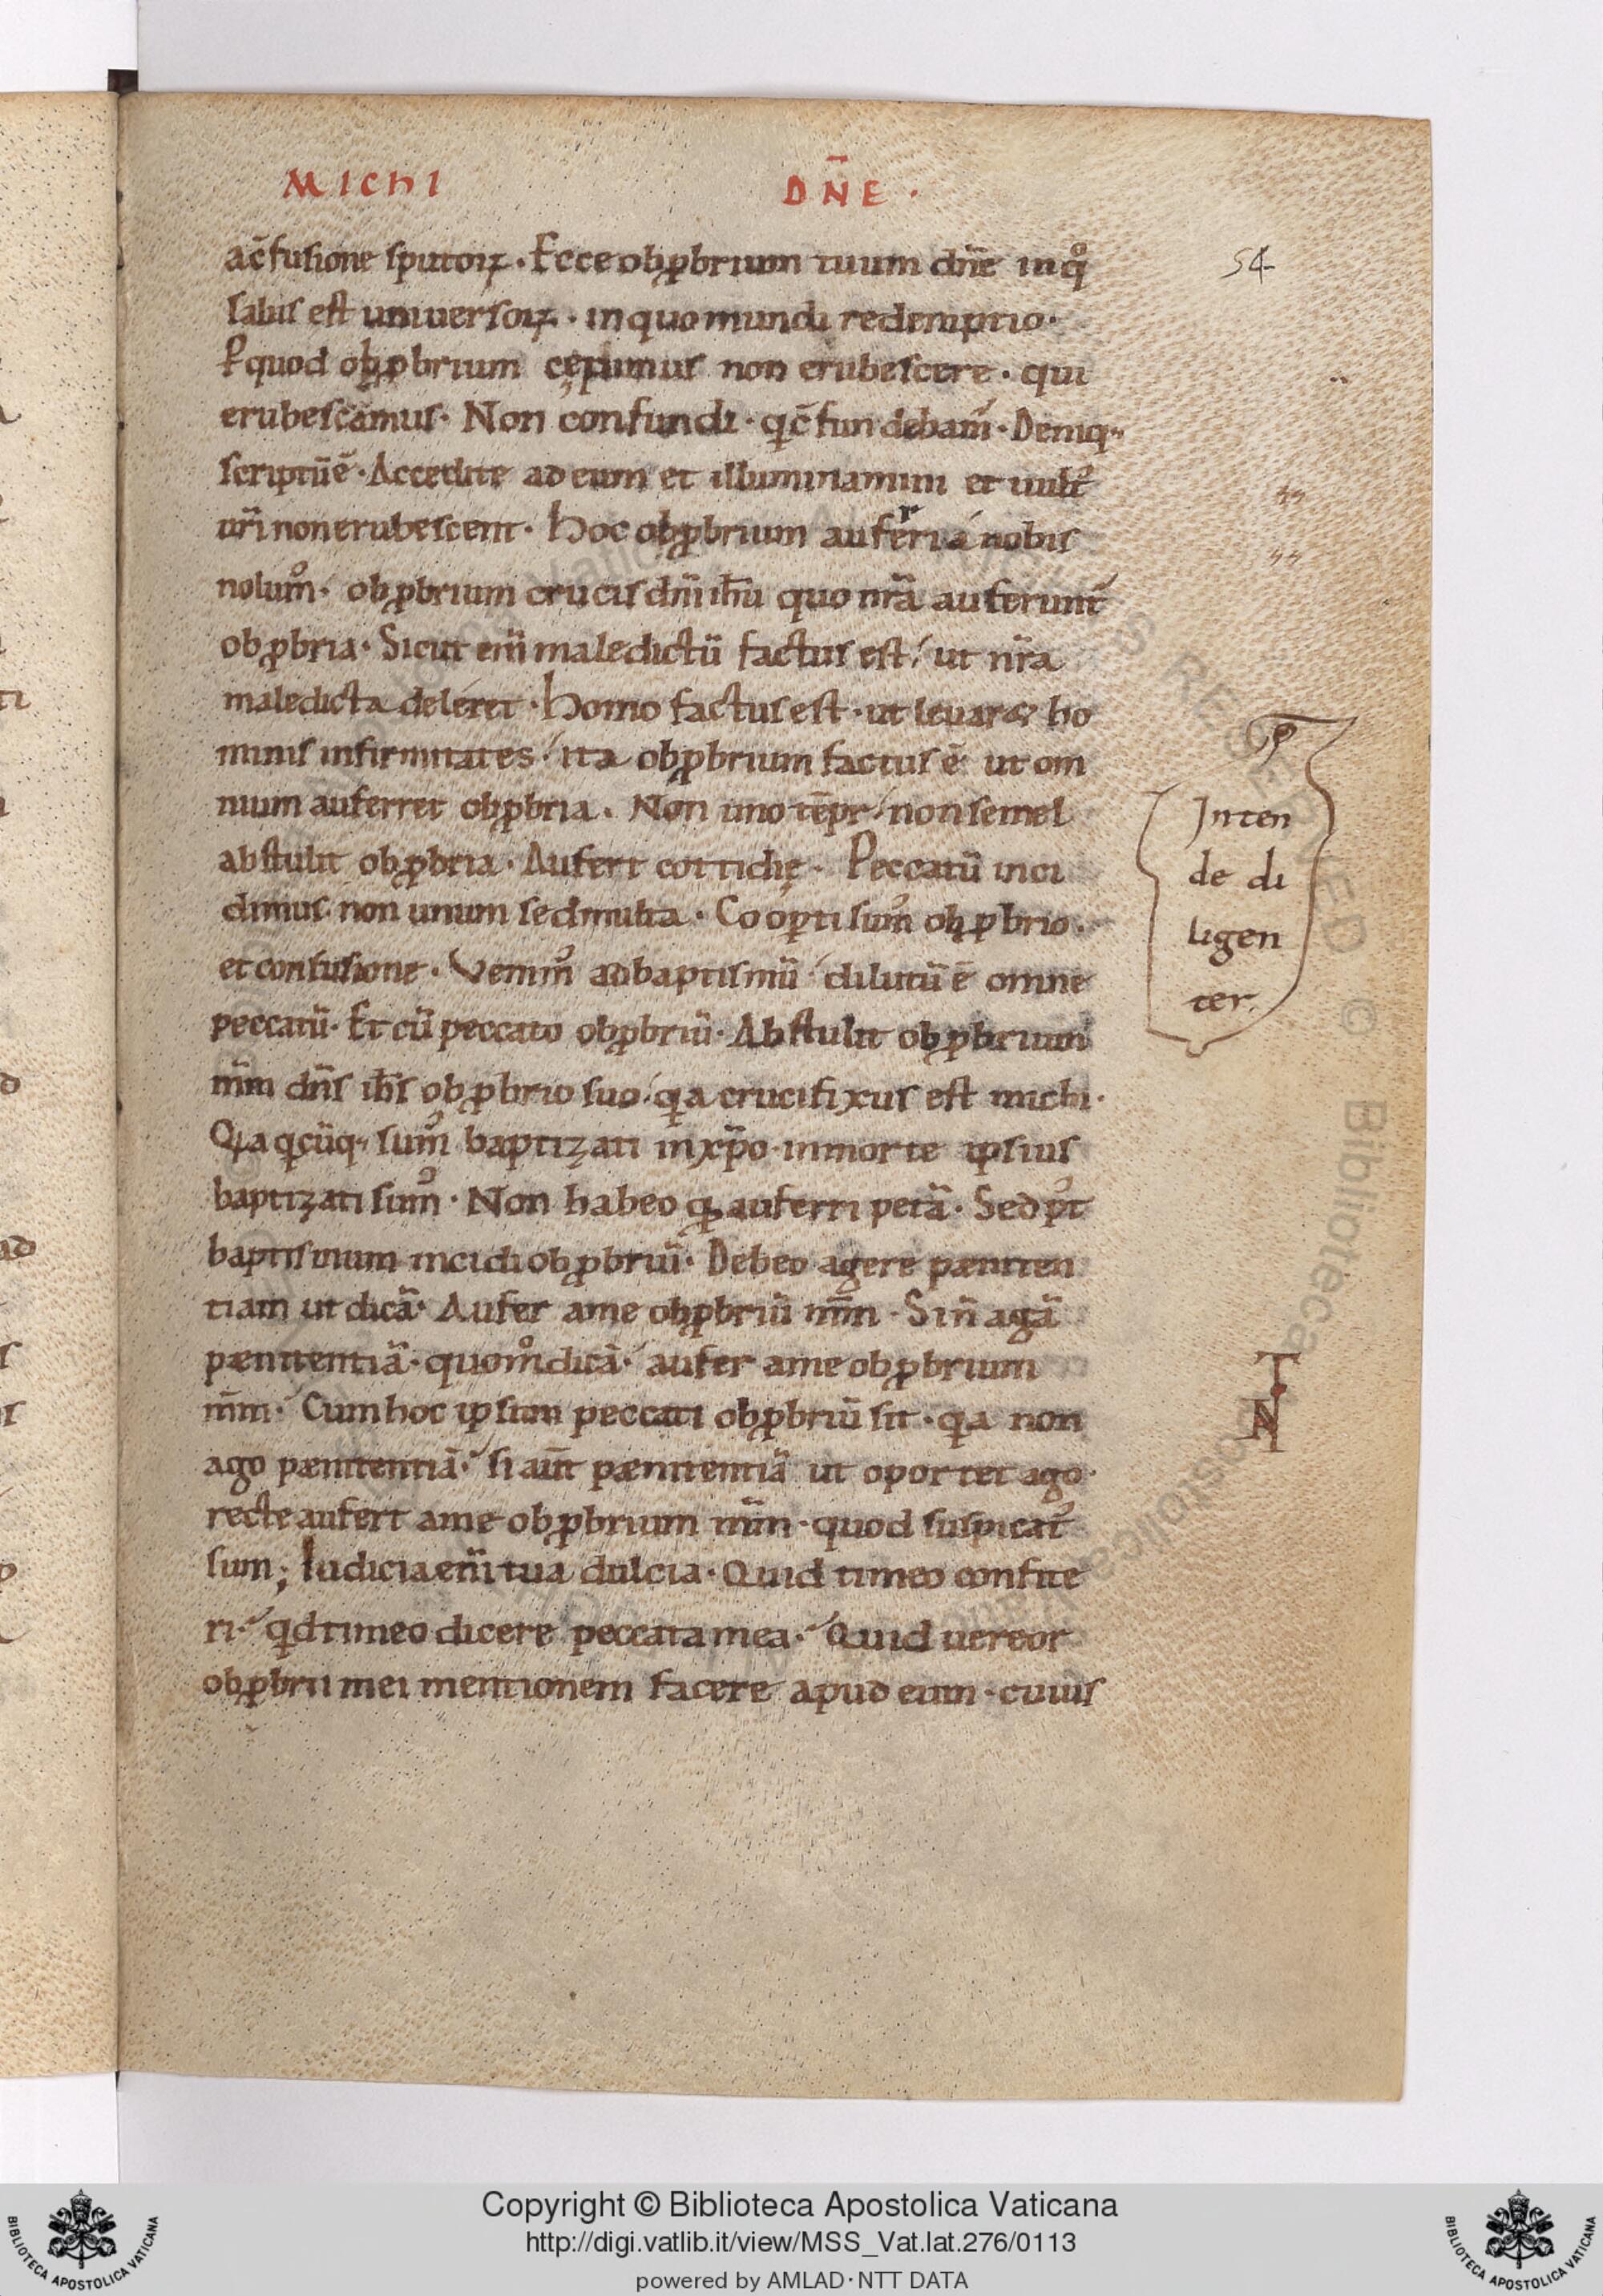 MICHI DN̄E ·
ac̄fusione sputoꝝ · Ecce obꝓbrium tuum dn̄e inqͦ
salus est uniuersoꝝ · inquo mundi redemptio ·
P quod obꝓbrium cępimus non erubescere · qui
erubescamus · Non confundi · qc̄fundebam᷒ · Deniq··
scriptūē · Accedite ad eum et illuminamini et uult᷒
ur̄i non erubescent · Hoc obꝓbrium auferri á nobis
nolum᷒ · obꝓbrium crucis dn̄i ih̄u quo nr̄a auferunt᷒
obꝓbria · Sicut eni̅ maledictū factus est / ut nr̄a
maledicta deleret · Homo factus est · ut leuar& ho
minis infirmitates / ita obꝓbrium factus ē ut om
nium auferret obꝓbria . Non uno tēpr / non semel
abstulit obꝓbria · Aufert cottidię · Peccatū inci
dimus non unum sed multa · Coopti sum᷒ obꝓbrio .
et confusione · Venim᷒ ad baptismū / dilutū ē omne
peccatū · Et cū peccato obꝓbriū · Abstulit obꝓbrium
mm̄ dn̄s ih̄s obꝓbrio suo / qa crucifixus est michi ·
Qa qcūq·· sum᷒ baptizati inxp̄o · inmorte ipsius
baptizati sum᷒ · Non habeo qꝫ auferri petā · Sed pt᷒
baptismum incidi obꝓbriū · Debeo agere pæniten
tiam ut dicā · Aufer ame obꝓbriū mm̄ · Sin̄ agā
pænitentiā · quom̊ dicā · aufer ame obꝓbrium
mm̄ · Cum hoc ipsum peccati obꝓbriū sit · qa non
ago pænitentiā · si aūt pænitentiā ut oportet ago ·
recte aufert ame obꝓbrium mm̄ · quod suspicat᷒
sum ; Iudicia eni̅ tua dulcia · Quid timeo confite
ri · qd timeo dicere peccata mea · Quid uereor
obꝓbrii mei mentionem facere apud eum · cuius
54
Inten
de di
ligen
ter.
N
Copyright © Biblioteca Apostolica Vaticana
http://digi.vatlib.it/view/MSS_Vat.lat.276/0113
powered by AMLAD·NTT DATA
BIBLIOTECA APOSTOLICA VATICANA
BIBLIOTECA APOSTOLICA VATICANA